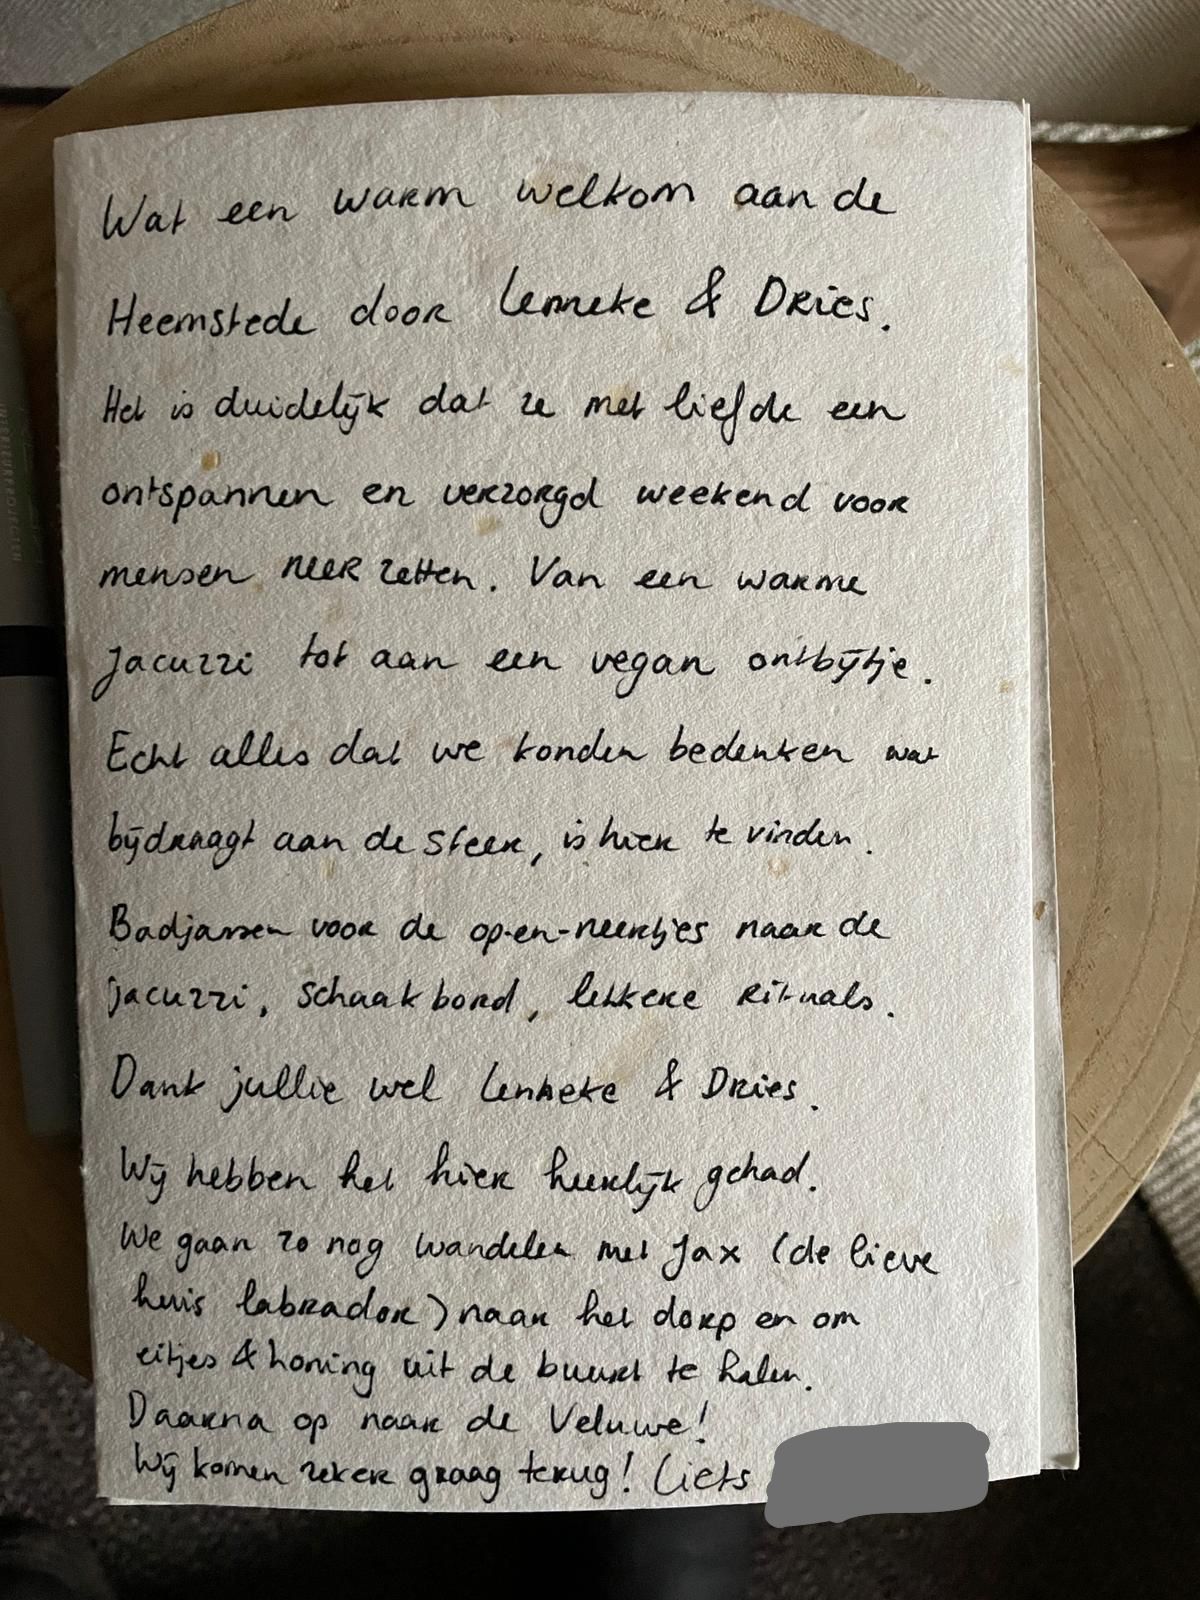 Wat een warm welkom aan de
Heemstede door Lenneke & Dries.
Het is duidelijk dat ze met liefde een
ontspannen en verzorgd weekend voor
mensen neer zetten. Van een warme
jacuzzi tot aan een vegan ontbijtje.
Echt alles dat we konden bedenken wat
bijdraagt aan de sfeer, is hier te vinden.
Badjassen voor de op-en-neertjes naar de
jacuzzi, schaakbord, lekkere rituals.
Dank jullie wel Lenneke & Dries.
Wij hebben het hier heerlijk gehad.
We gaan zo nog wandelen met Jax (de lieve
huis labrador) naar het dorp en om
eitjes & honing uit de buurt te halen.
Daarna op naar de Veluwe!
Wij komen zeker graag terug! Liefs